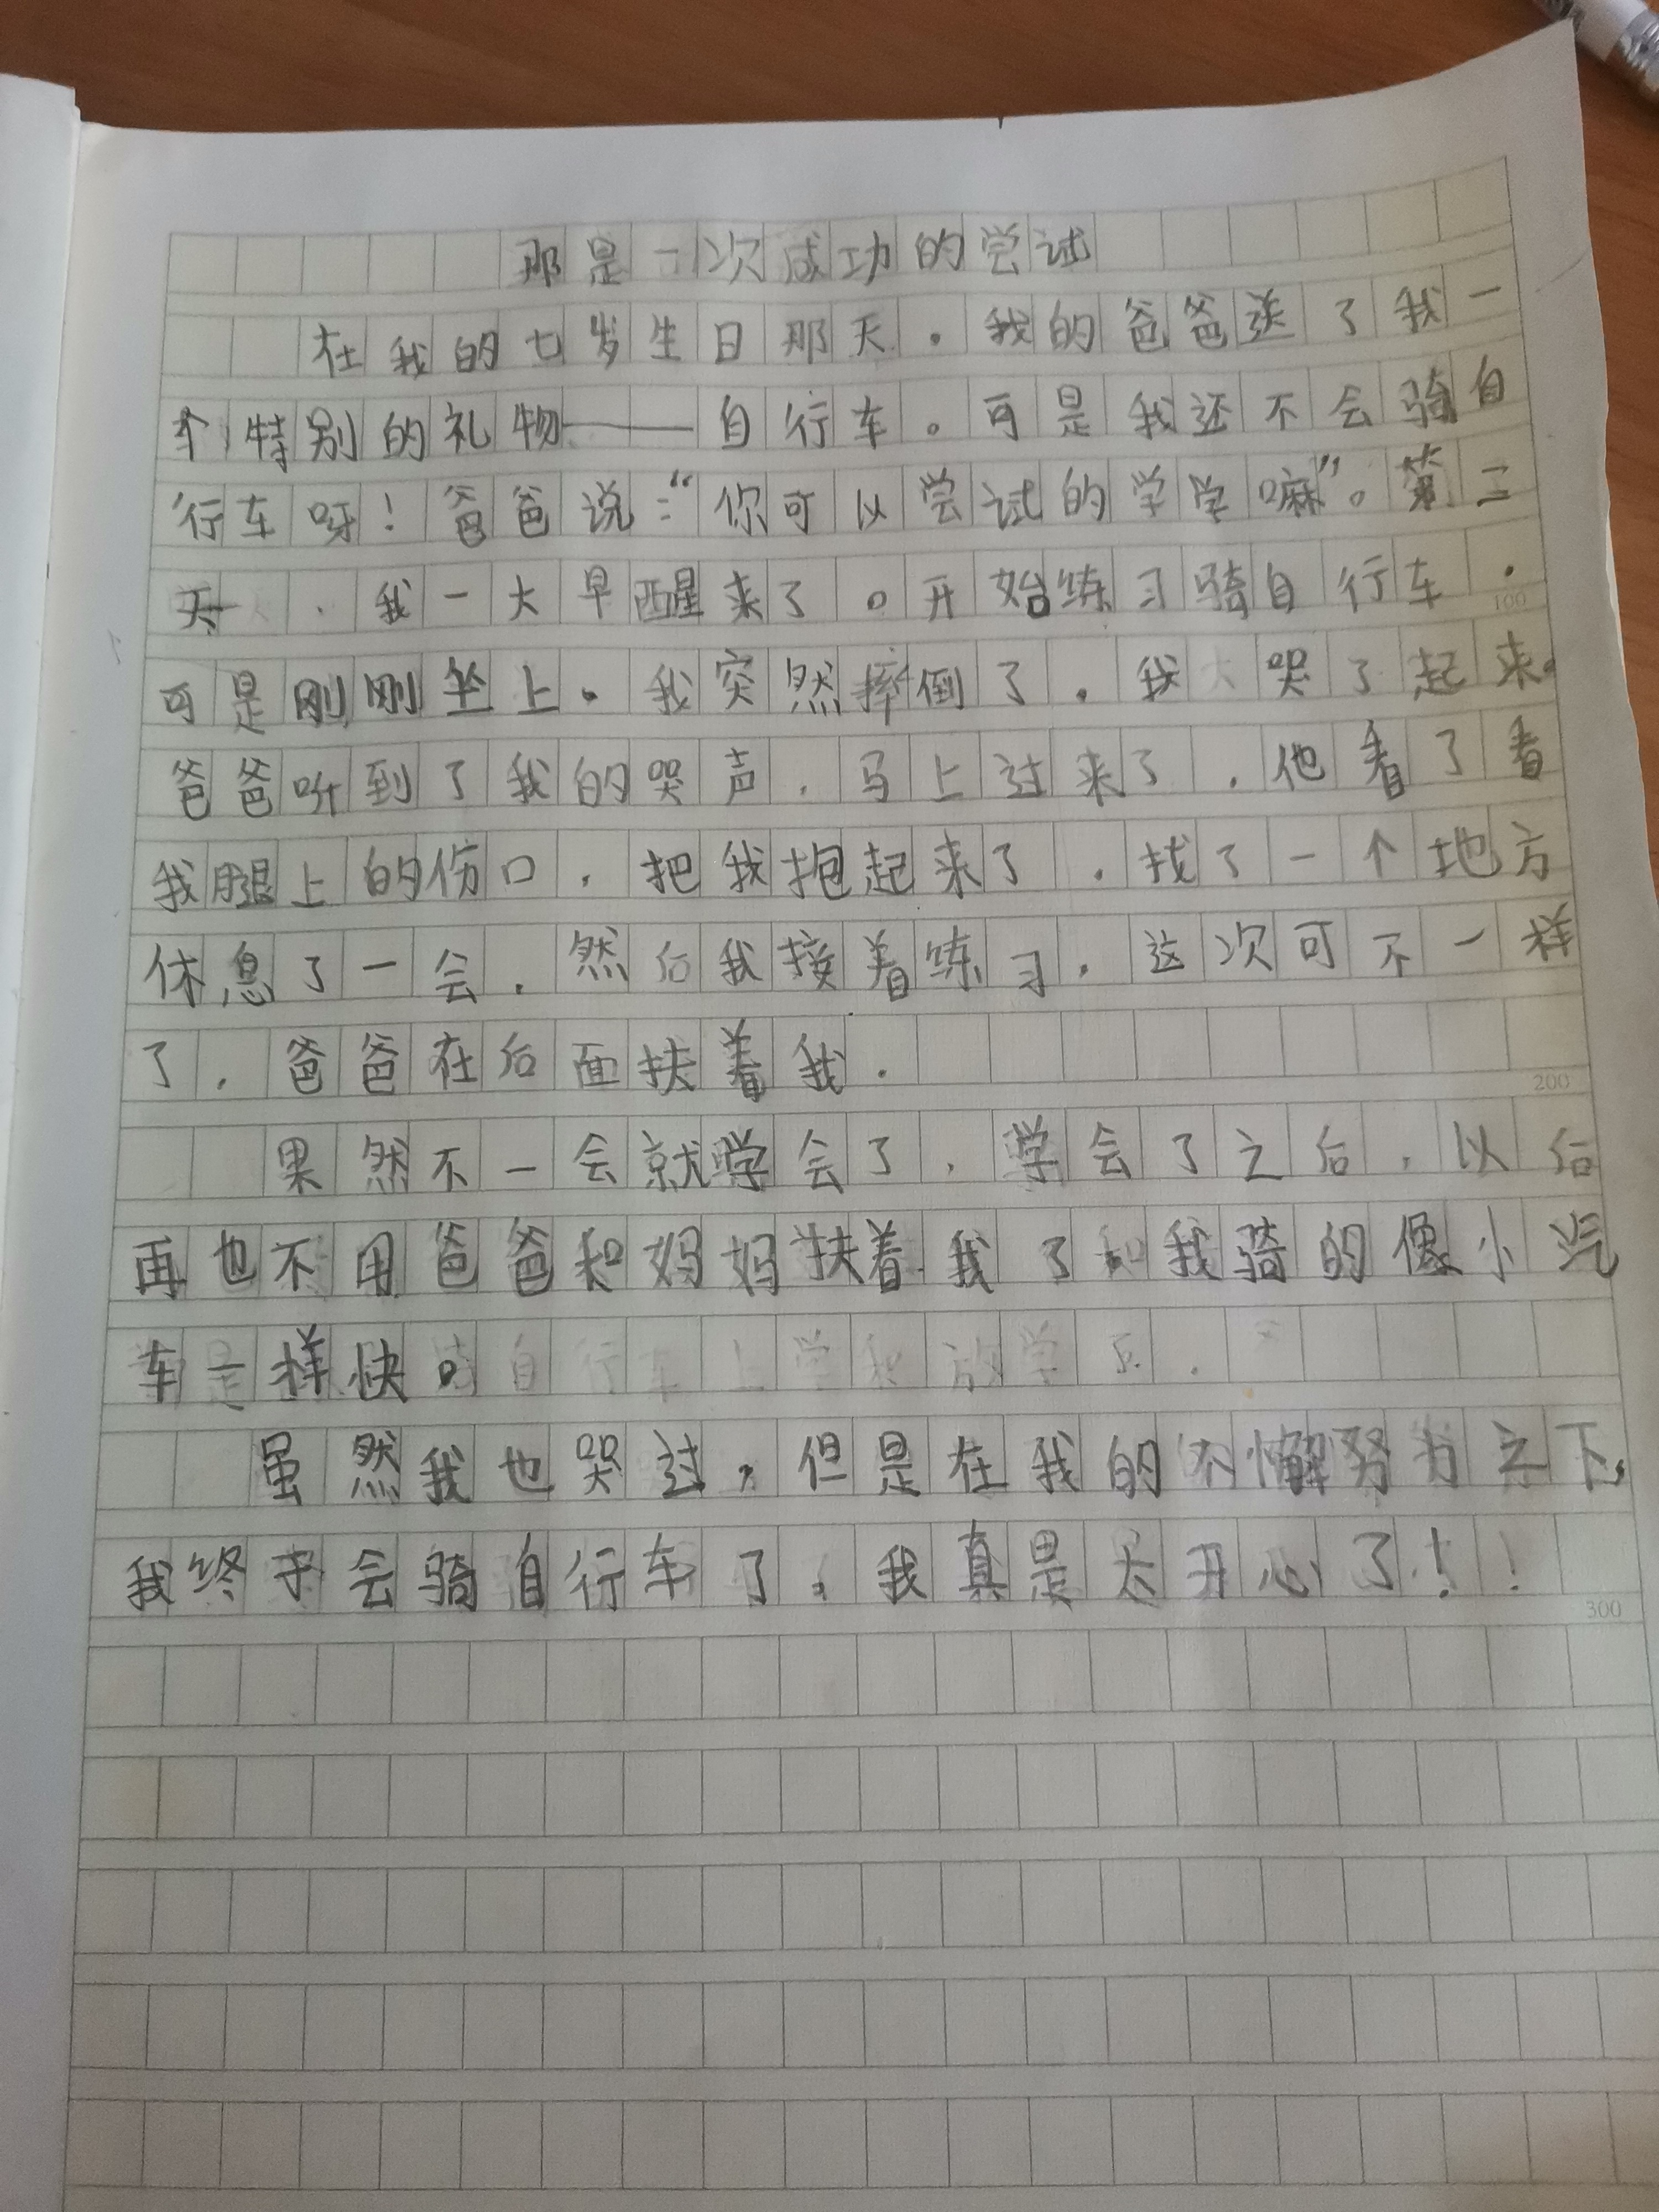 那是一次成功的尝试
在我的七岁生日那天.我的爸爸送了我一
个特别的礼物——自行车。可是我还不会骑自
行车呀!爸爸说:“你可以尝试的学学嘛”。第二
天.我一大早醒来了。开始练习骑自行车.
100
可是刚刚坐上.我突然摔倒了.我哭了起来.
爸爸听到了我的哭声.马上过来了.他看了看
我腿上的伤口.把我抱起来了.找了一个地方
休息了一会.然后我接着练习.这次可不一样
了.爸爸在后面扶着我.
200
果然不一会就学会了.学会了之后.以后
再也不用爸爸和妈妈扶着我了.我骑的像小汽
车一样快。
虽然我也哭过,但是在我的不懈努力之下,
我终于会骑自行车了.我真是太开心了!!
300